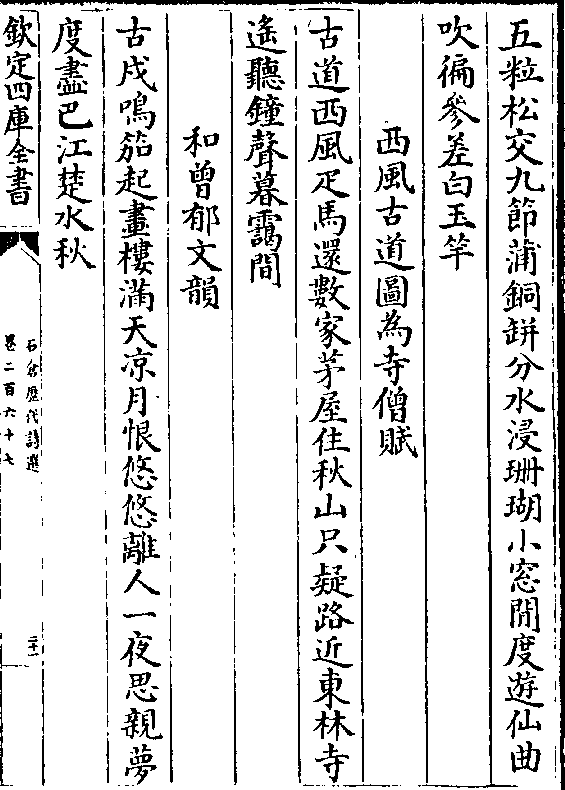 五粒松交九節蒲銅缾分水浸珊瑚小窓閒度遊仙曲
吹徧參差白玉竿
西風古道圖為寺僧賦
古道西風疋馬還數家茅屋住秋山只疑路近東林寺
遙聽鐘聲暮靄間
和曾郁文韻
古戍鳴笳起畫樓滿天凉月恨悠悠離人一夜思親夢
度盡巴江楚水秋
欽定四庫全書
石倉歷代詩選
卷二百六十七